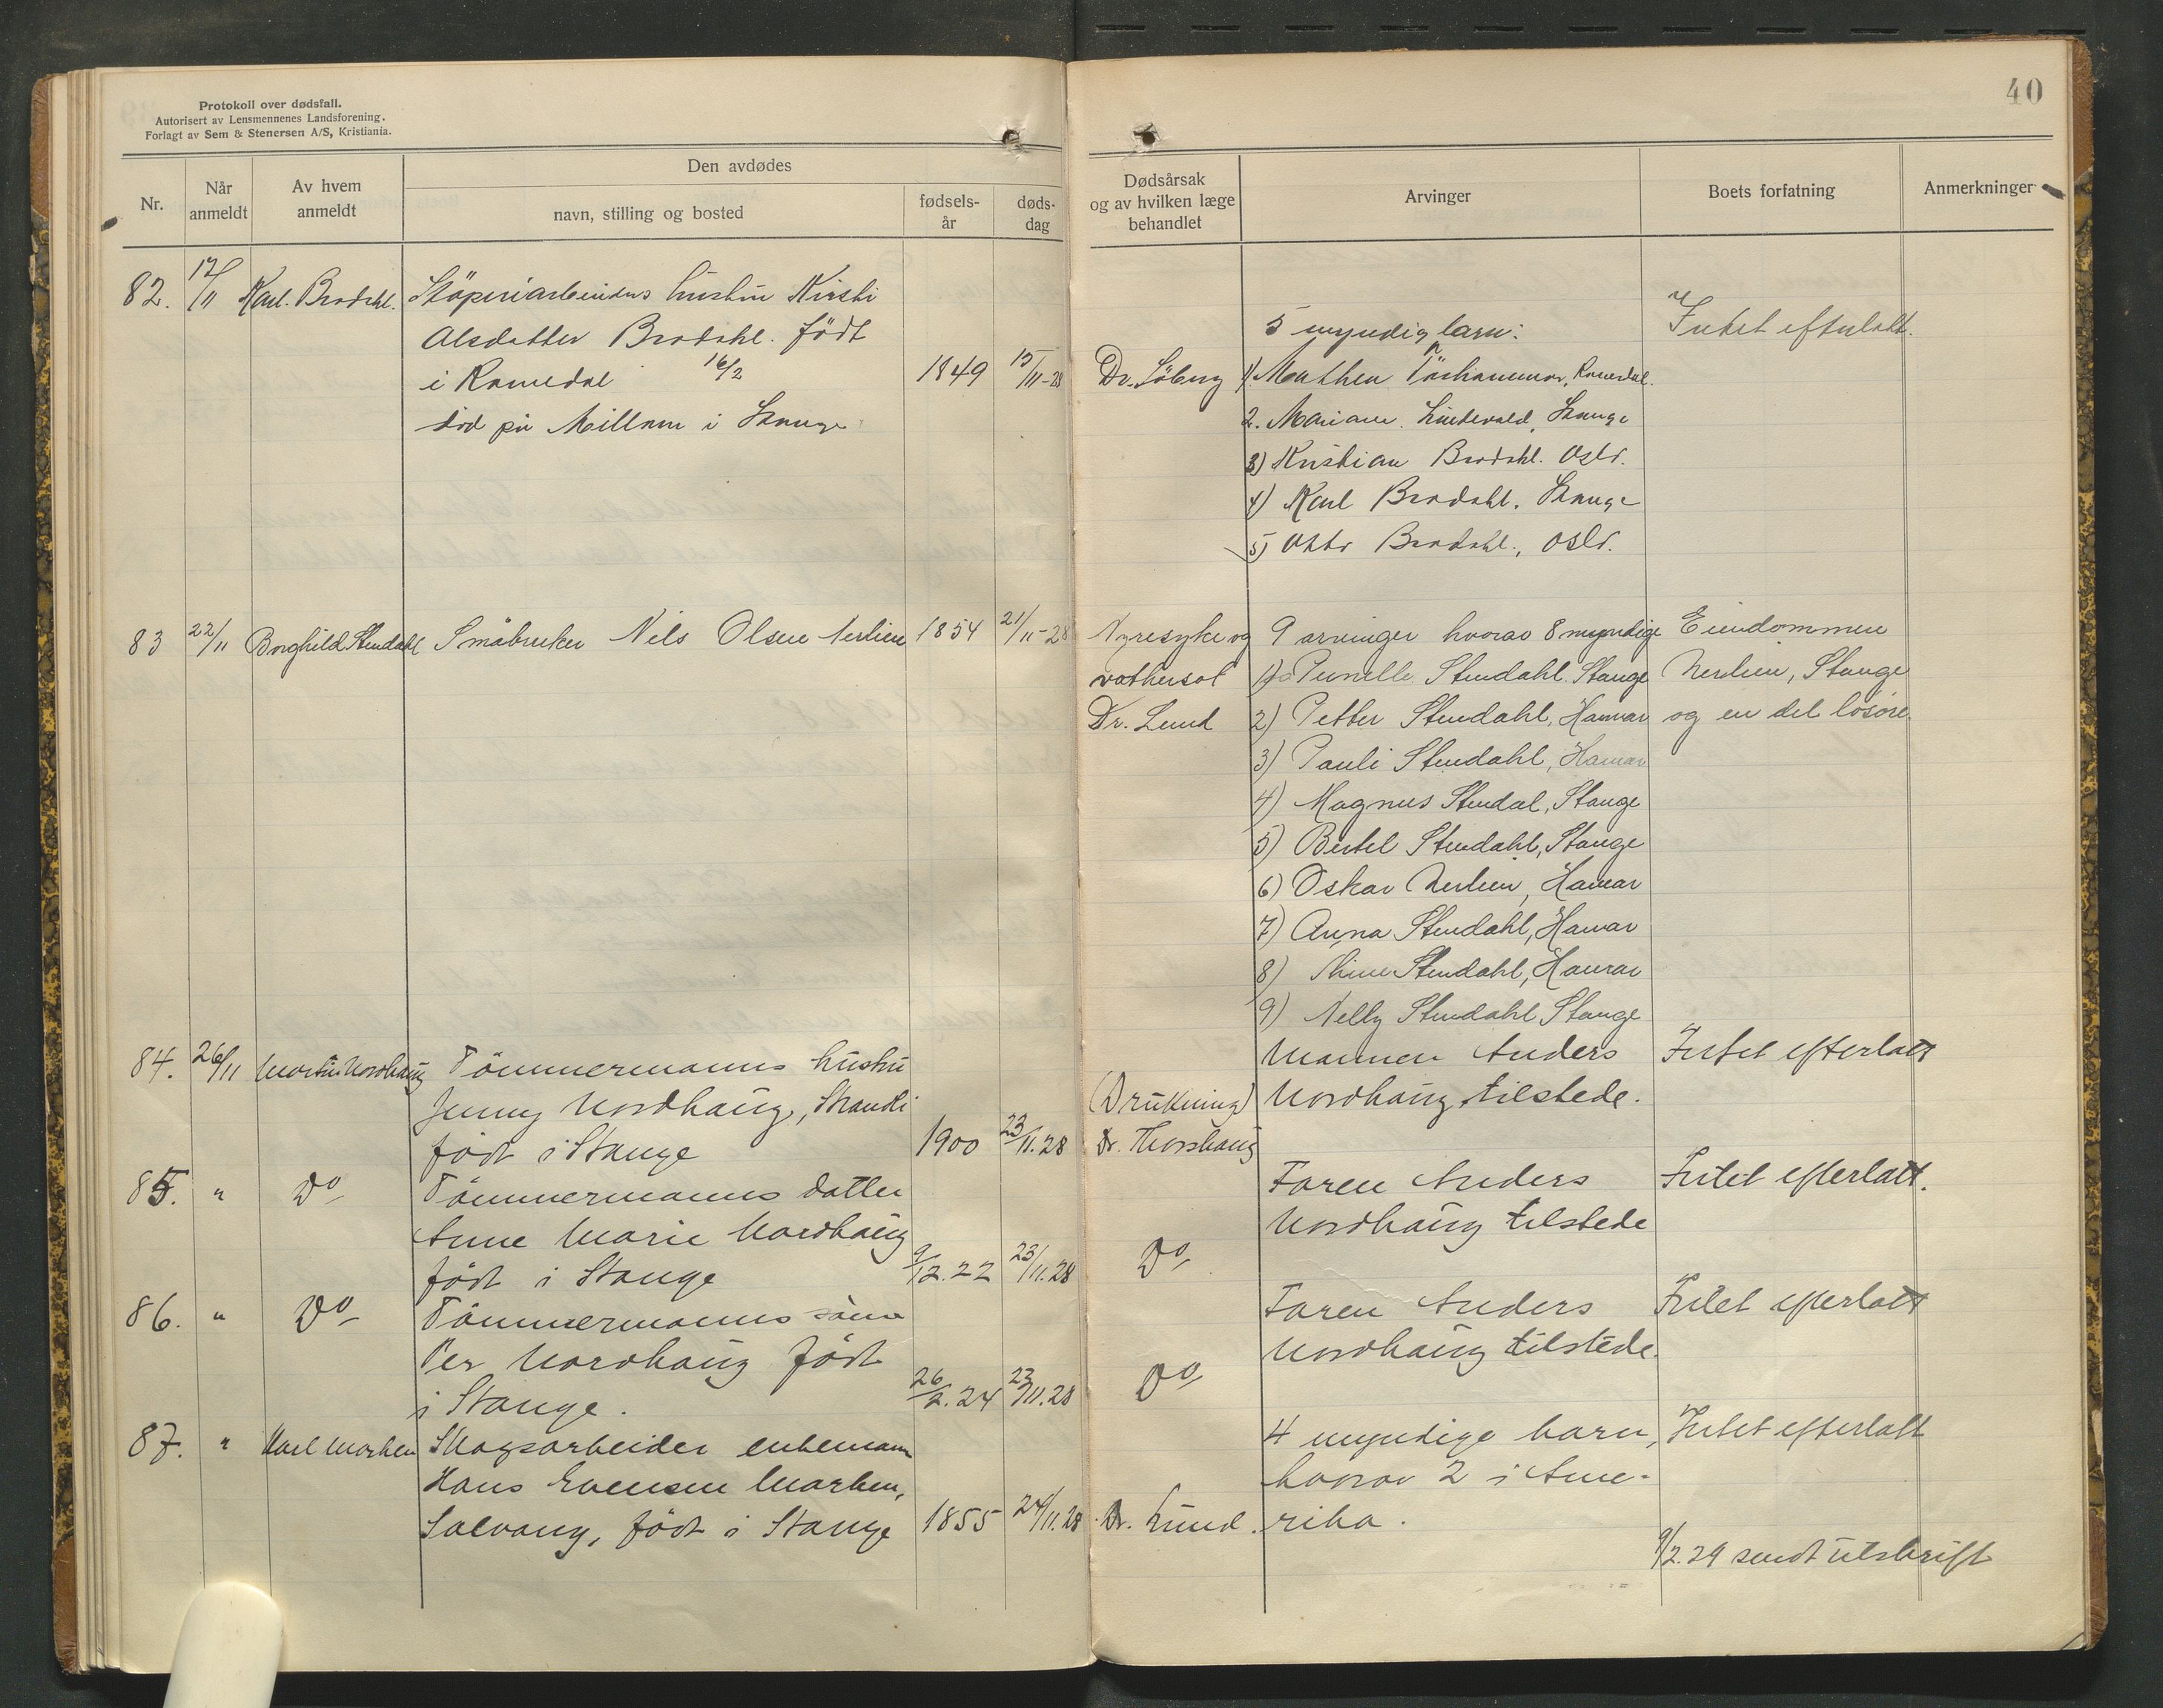 40
Protokoll over dødsfall.
Autorisert av Lensmennenes Landsforening.
Forlagt av Sem & Stenersen A/S, Kristiania.
Nr.
Når anmeldt
Av hvem anmeldt
Den avdødes
navn, stilling og bosted
fødsels-år
døds-dag
Dødsårsak og av hvilken læge behandlet
Arvinger
Boets forfatning
Anmerkninger
82. 17/11 Karl. Brodahl. Støperiarbeiders hustru Kirsti
Olsdatter Brodahl. født
i Romedal 16/2 1849 15/11-28 Dr. Löberg
død på i Stange
5 myndig barn: Intet efterlatt.
1) Mathea Romedal.
2. Mariane Lindevald, Stange
3) Kristian Brodahl. Oslo.
4) Karl Brodahl. Stange
5) Otto Brodahl., Oslo.
83 22/11 Borghild Stendahl Småbruker Nils Olsen Nerlien 1854 21/11-28 Nyresyke og
vothersot
Dr. Lund
9 arvinger hvorav 8 myndige
1) Pernelle Stendahl. Stange
2) Petter Stendahl, Hamar
3) Pauli Stendahl, Hamar
4) Magnus Stendal, Stange
5) Bertel Stendahl, Stange
6) Oskar Nerlien, Hamar
7) Anna Stendahl, Hamar
8) Stendahl, Hamar
9) Nelly Stendahl Stange
Eiendommen
Nerlien, Stange
og en del løsøre.
84. 26/11 Martin Nordhaug Tömmermanns hustru
Jenny Nordhaug,
født i Stange 1900 23/11.28
(Drukning)
Dr. Thorshaug
Mannen Anders
Nordhaug tilstede.
Intet efterlatt
85. " Do Tömmermanns datter
Anne Marie Nordhaug
født i Stange 9/12.22 23/11.28 Do
Faren Anders
Nordhaug tilstede
Intet efterlatt.
86. " Do Tömmermanns sönn
Per Nordhaug født
i Stange. 26/2.24 23/11.28 Do
Faren Anders
Nordhaug tilstede.
Intet efterlatt
87. " Karl Morken Skogsarbeider enkemann
Hans Evensen Morken,
Solvang, født i Stange 1855 24/11.28 Dr. Lund.
4 myndige barn,
hvorav 2 i Ame-
rika.
Intet efterlatt
9/2.29 sendt utskrift